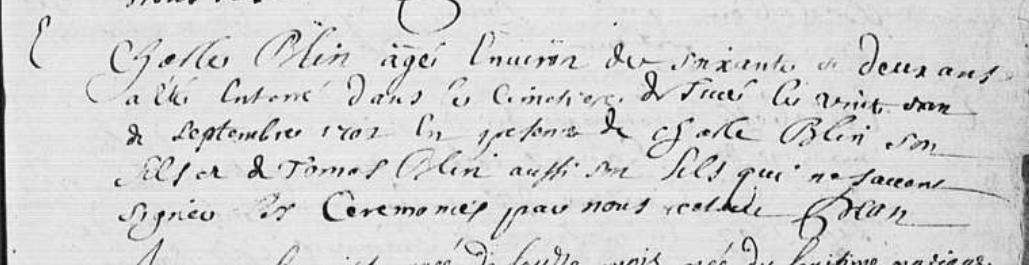 Chasles Blin âgé Environ de soixante et deux ans
a été Enterré dans le Cimetiere de le vint
de Septembre 1702 En presence de chasle Blin son
fils et de Tomas Blin aussi son fils qui ne savent
signer les Ceremonies par nous